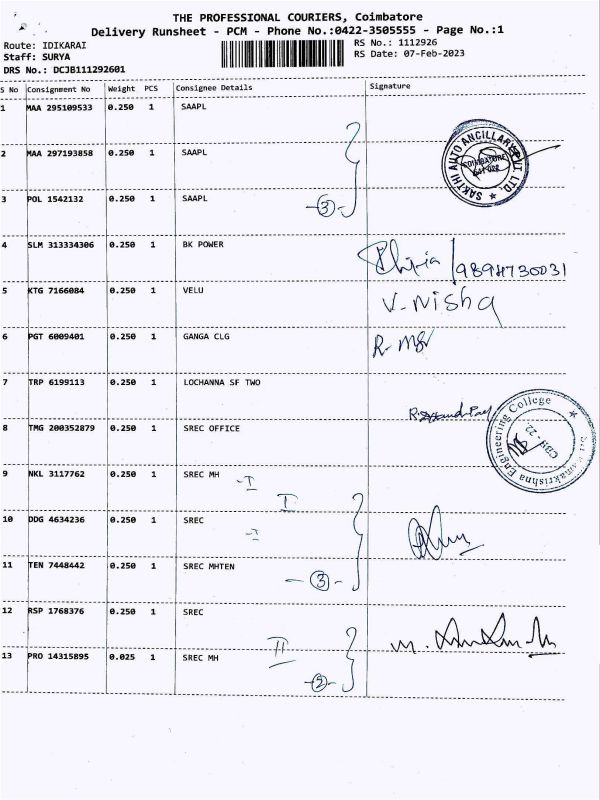 THE PROFESSIONAL COURIERS, Coimbatore
Delivery Runsheet - PCM - Phone No.:0422-3505555 - Page No.:1
Route: IDIKARAI
RS No.: 1112926
Staff: SURYA
RS Date: 07-Feb-2023
DRS No.: DCJB111292601
S No Consignment No Weight PCS Consignee Details Signature
1 MAA 295109533 0.250 1 SAAPL
2 MAA 297193858 0.250 1 SAAPL
SAKTHI AUTO ANCILLARY PVT. LTD.
COIMBATORE
3 POL 1542132 0.250 1 SAAPL
-3-
4 SLM 313334306 0.250 1 BK POWER
5 KTG 7166084 0.250 1 VELU
V. Nisha
6 PGT 6009401 0.250 1 GANGA CLG
7 TRP 6199113 0.250 1 LOCHANNA SF TWO
8 TMG 200352879 0.250 1 SREC OFFICE
Sri Ramakrishna Engineering College
CBE - 22.
9 NKL 3117762 0.250 1 SREC MH -I
I
10 DDG 4634236 0.250 1 SREC -I
11 TEN 7448442 0.250 1 SREC MHTEN
-3-
12 RSP 1768376 0.250 1 SREC
II
13 PRO 14315895 0.025 1 SREC MH
-2-